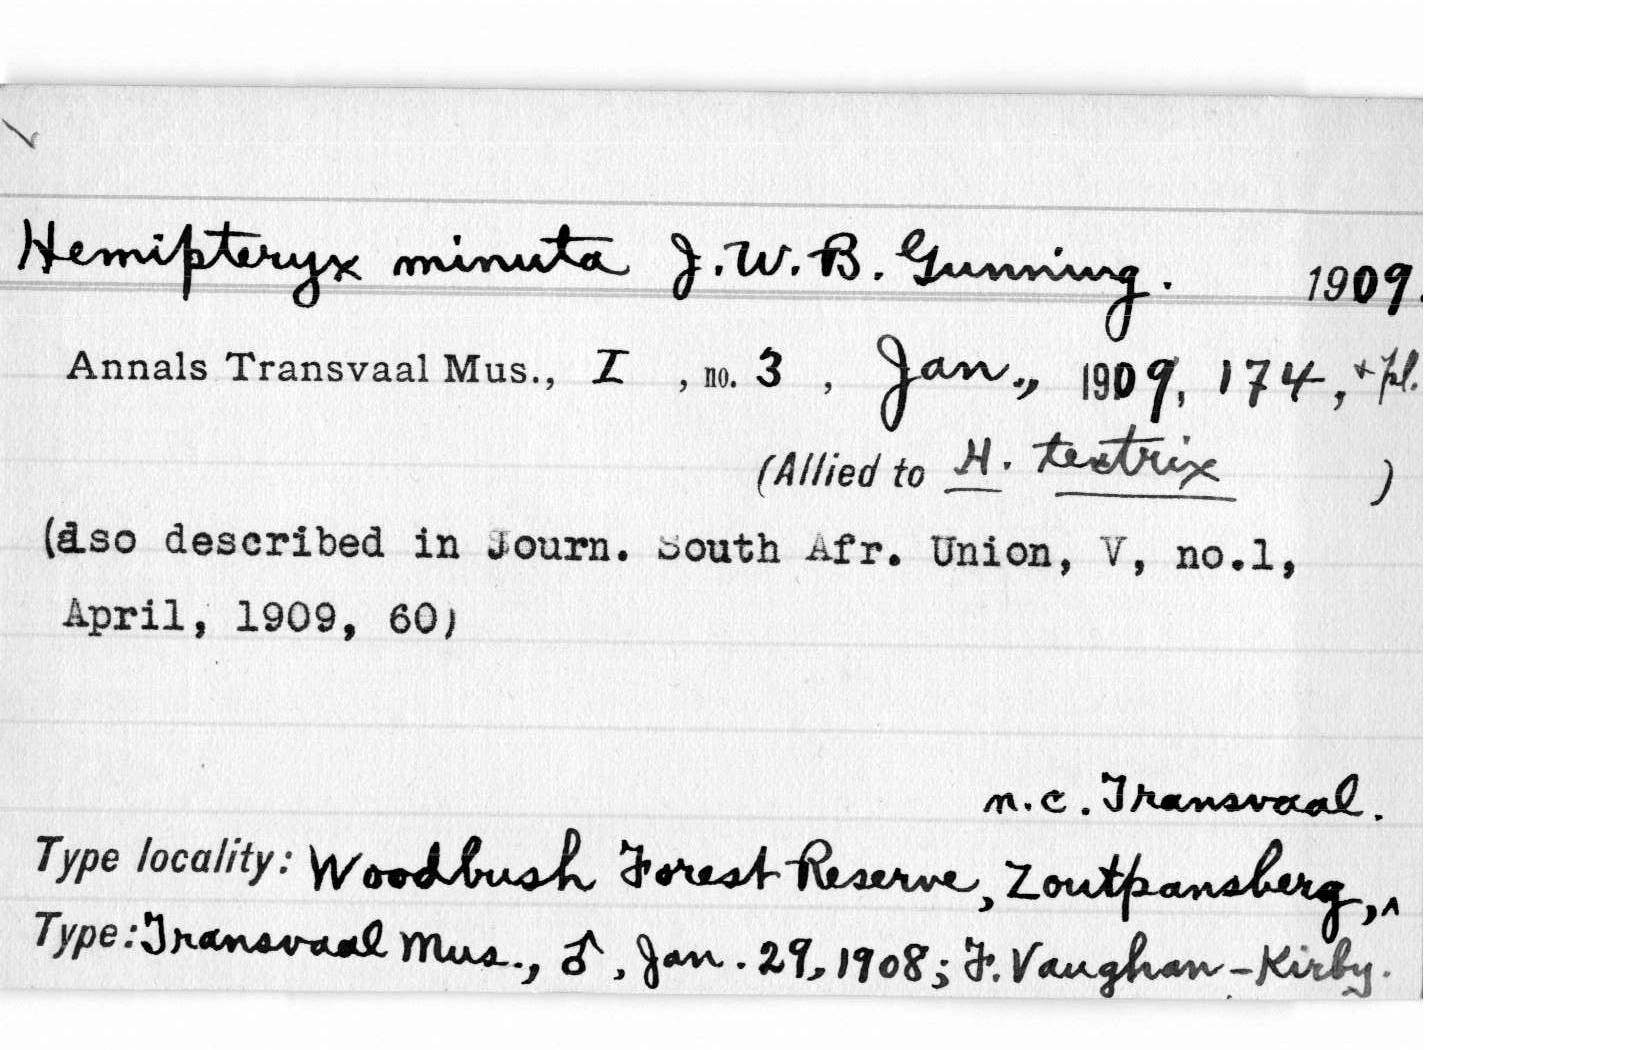 Hemipteryx minuta J.W.B. Gunning. 1909.
Annals Transvaal Mus., I , no. 3 , Jan., 1909, 174, + pl.
(Allied to H. textrix )
(also described in Journ. South Afr. Union, V, no.1,
April, 1909, 60)
n.c. Transvaal.
Type locality: Woodbush Forest Reserve, Zoutpansberg, ^
Type: Transvaal Mus., ♂, Jan. 29, 1908; F. Vaughan-Kirby.